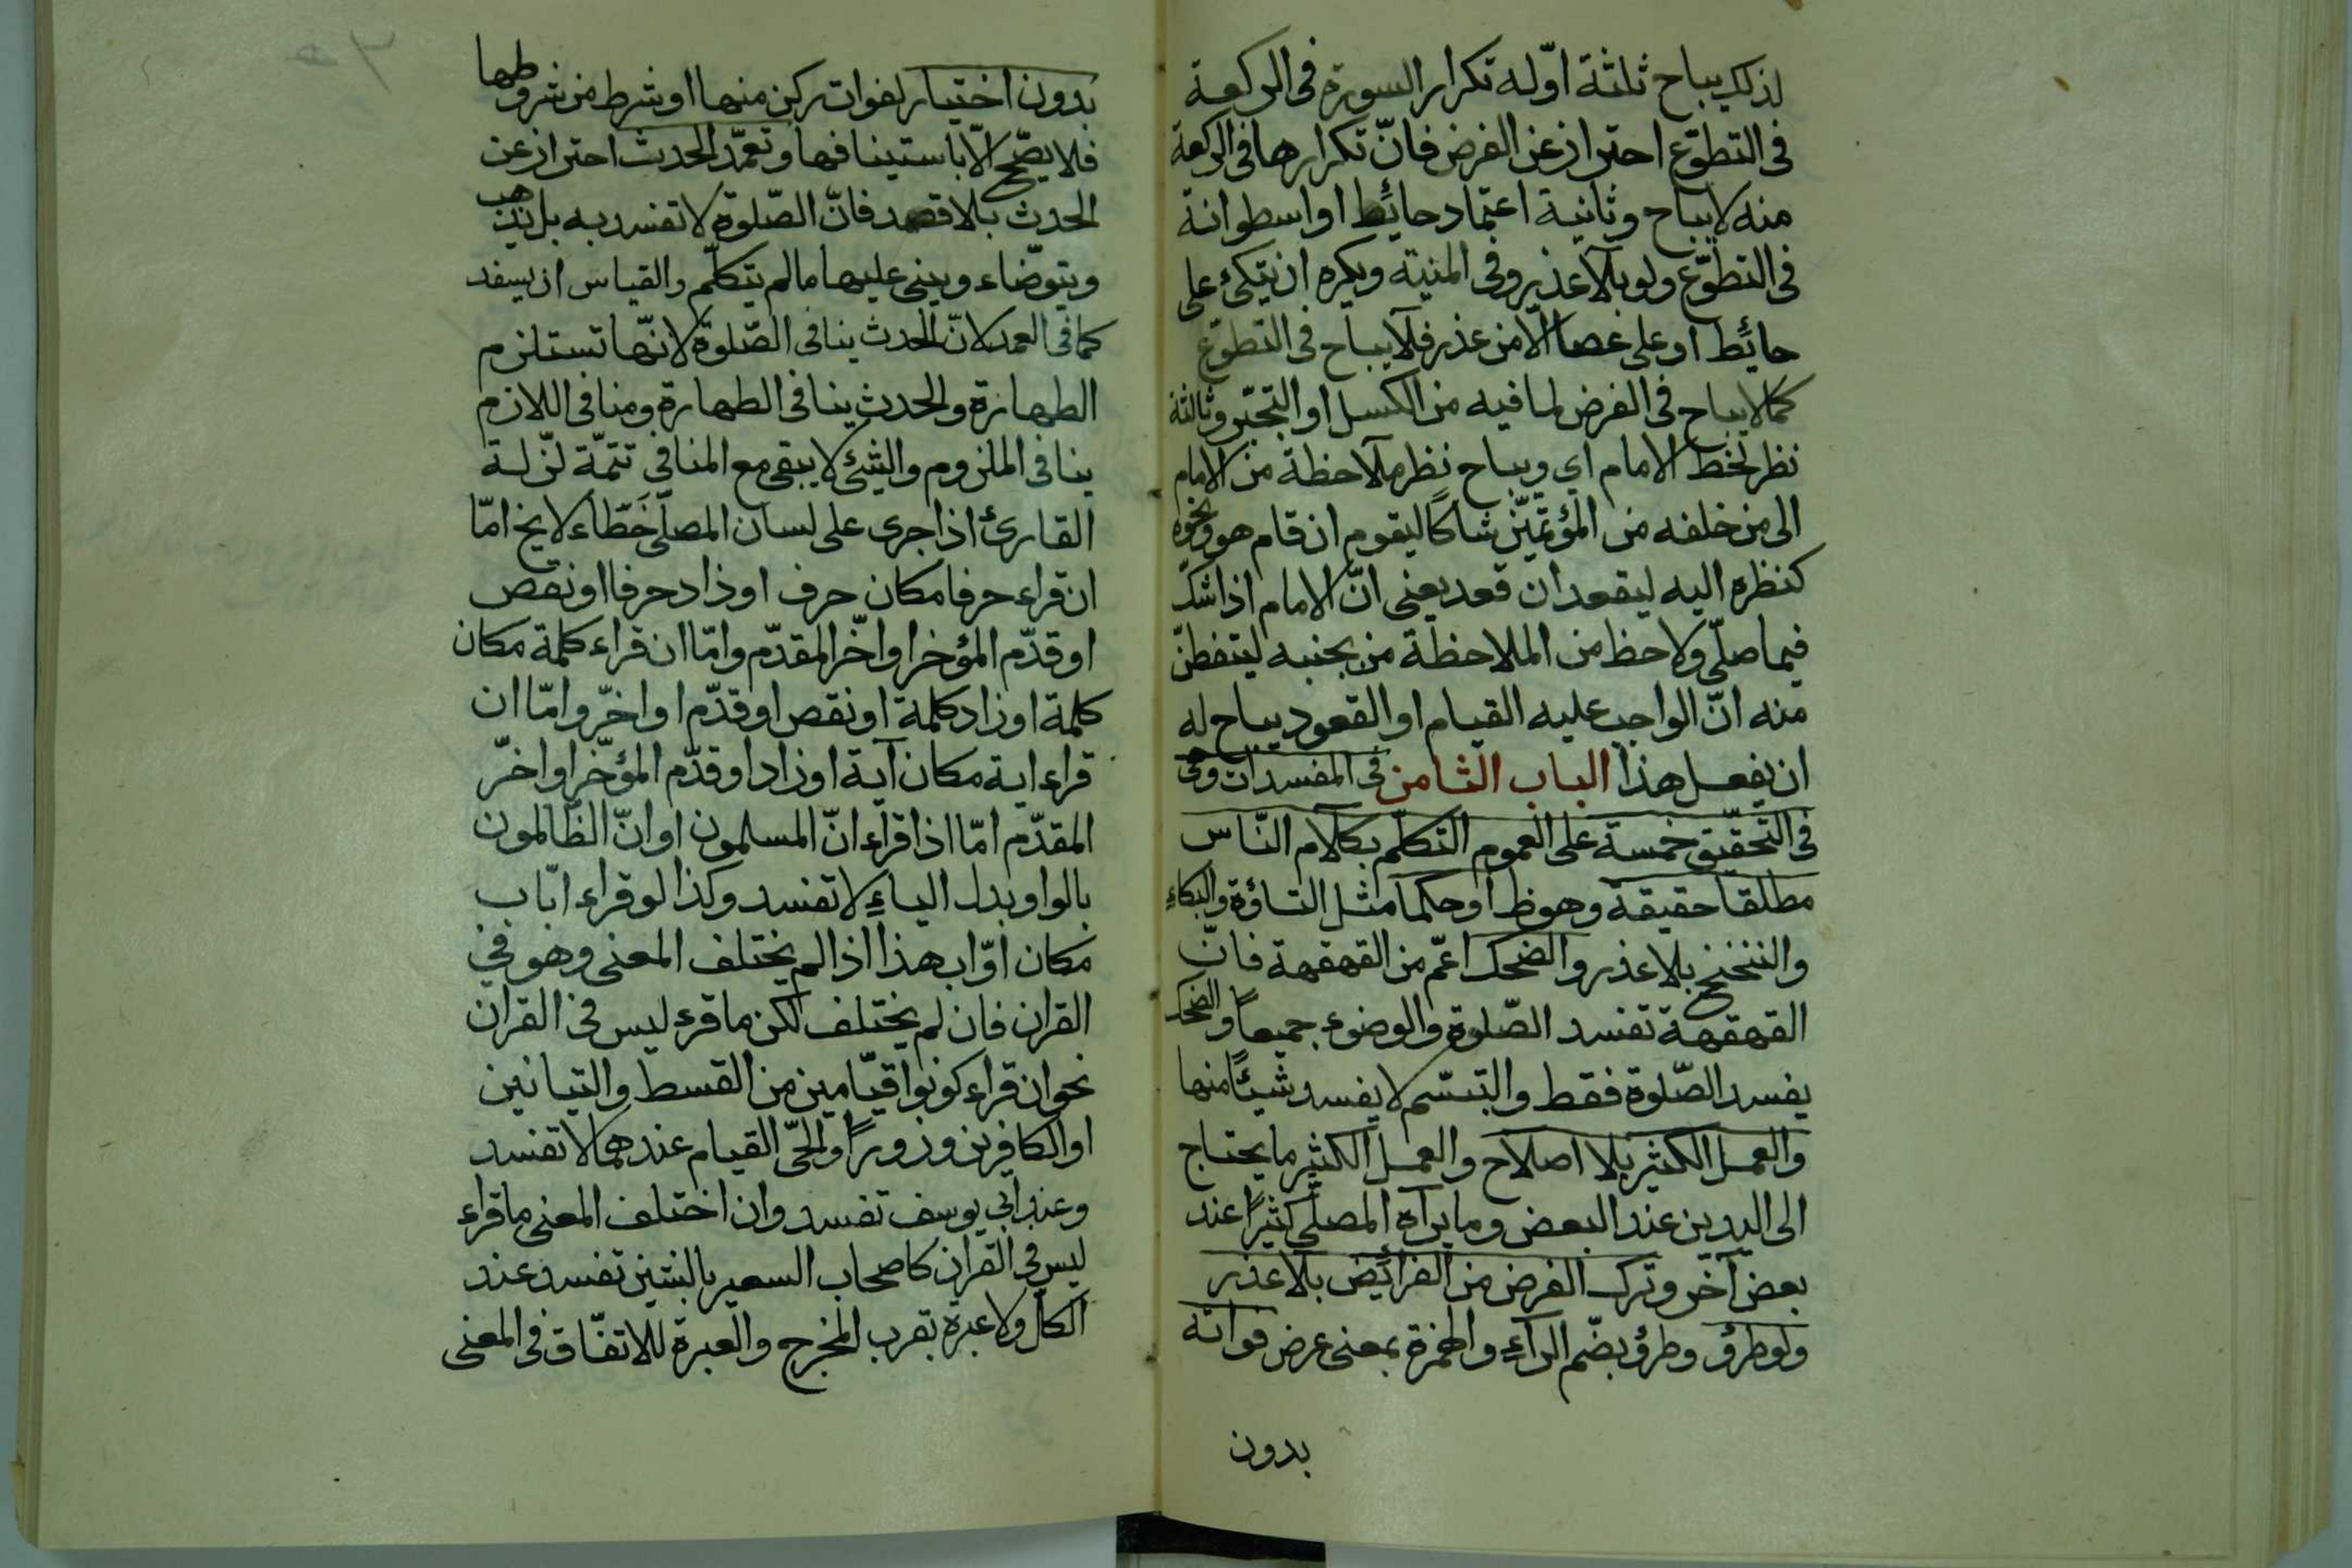 لذلك يباح ثلثة اوّله تكرار السورة فى الركعة
فى التطوّع احتراز عن الفرض فانّ تكرارها فى الركعة
منه لا يباح وثانية اعتماد حائط او اسطوانة
فى التطوّع ولو بلا عذر وفى المنية ويكره ان يتكئ على
حائط او على عصا الّا من عذر فلا يباح فى التطوّع
كما لا يباح فى الفرض لما فيه من الكسل او التجبّر وثالثة
نظر تخط الامام اي ويباح نظر ملاحظة من الامام
الى من خلفه من المؤتمّين شاكا ليقوم ان قام هو ونحوه
كنظره اليه ليقعد ان قعد يعنى انّ الامام اذا شك
فيما صلّى ولاحظ من الملاحظة من بجنبه ليتفطن
منه انّ الواجب عليه القيام او القعود يباح له
ان يفعل هذا الباب الثامن فى المفسدات وهى
فى التحقيق خمسة على العموم التكلّم بكلام النّاس
مطلقا حقيقة وهو ظ او حكما مثل التاؤه والبكاء
والتنحنح بلا عذر والضحك اعمّ من القهقهة فانّ
القهقهة تفسد الصّلوة والوضوء جميعاً والضحك
يفسد الصّلوة فقط والتبسّم لا يفسد شيئاً منها
والعمل الكثير بلا اصلاح والعمل الكثير ما يحتاج
الى اليدين عند البعض وما يراه المصلّى كثيراً عند
بعض آخر وترك الفرض من الفرائض بلا عذر
ولو طرؤ وطرؤ بضّم الرآء والهمزة بمعنى عرض فواته
بدون
بدون اختيار لفوات ركن منها او شرط من شروطها
فلا يصّح الّا باستينافها وتعمّد الحدث احتراز عن
الحدث بلا قصد فانّ الصّلوة لا تفسد به بل يذهب
ويتوّضاء ويبنى عليها ما لم يتكلّم والقياس ان يفسد
كما فى العمد لانّ الحدث ينافى الصّلوة لانّها تستلزم
الطهارة والحدث ينافى الطهارة ومنافى اللازم
ينافى الملزوم والشئ لا يبقى مع المنافى تتمّة لزّلة
القارئ اذا جرى على لسان المصلّى خَطاَء لا يخ امّا
ان قراء حرفا مكان حرف او زاد حرفا او نقص
او قدّم المؤخر او اخّر المقدّم وامّا ان قراء كلمة مكان
كلمة او زاد كلمة او نقص او قدّم او اخّر وامّا ان
قراء اية مكان آية او زاد او قدّم المؤخّر او اخّر
المقدّم امّا اذا قراء انّ المسلمون او انّ الظالمون
بالواو بدل الياء لا تفسد وكذا لو قراء ايّاب
مكان اوّاب هذا اذا لم يختلف المعنى وهو فى
القران فان لم يختلف لكن ما قرء ليس فى القران
نحو ان قراء كونوا قيّامين من القسط والتيانين
او الكافرين وزوراً والحّى القيام عندهما لا تفسد
وعند ابى يوسف تفسد وان اختلف المعنى ما قراء
ليس فى القران كاصحاب السعير بالشين تفسد عند
الكل ولا عبرة بقرب المخرج والعبرة للاتفّاق فى المعنى